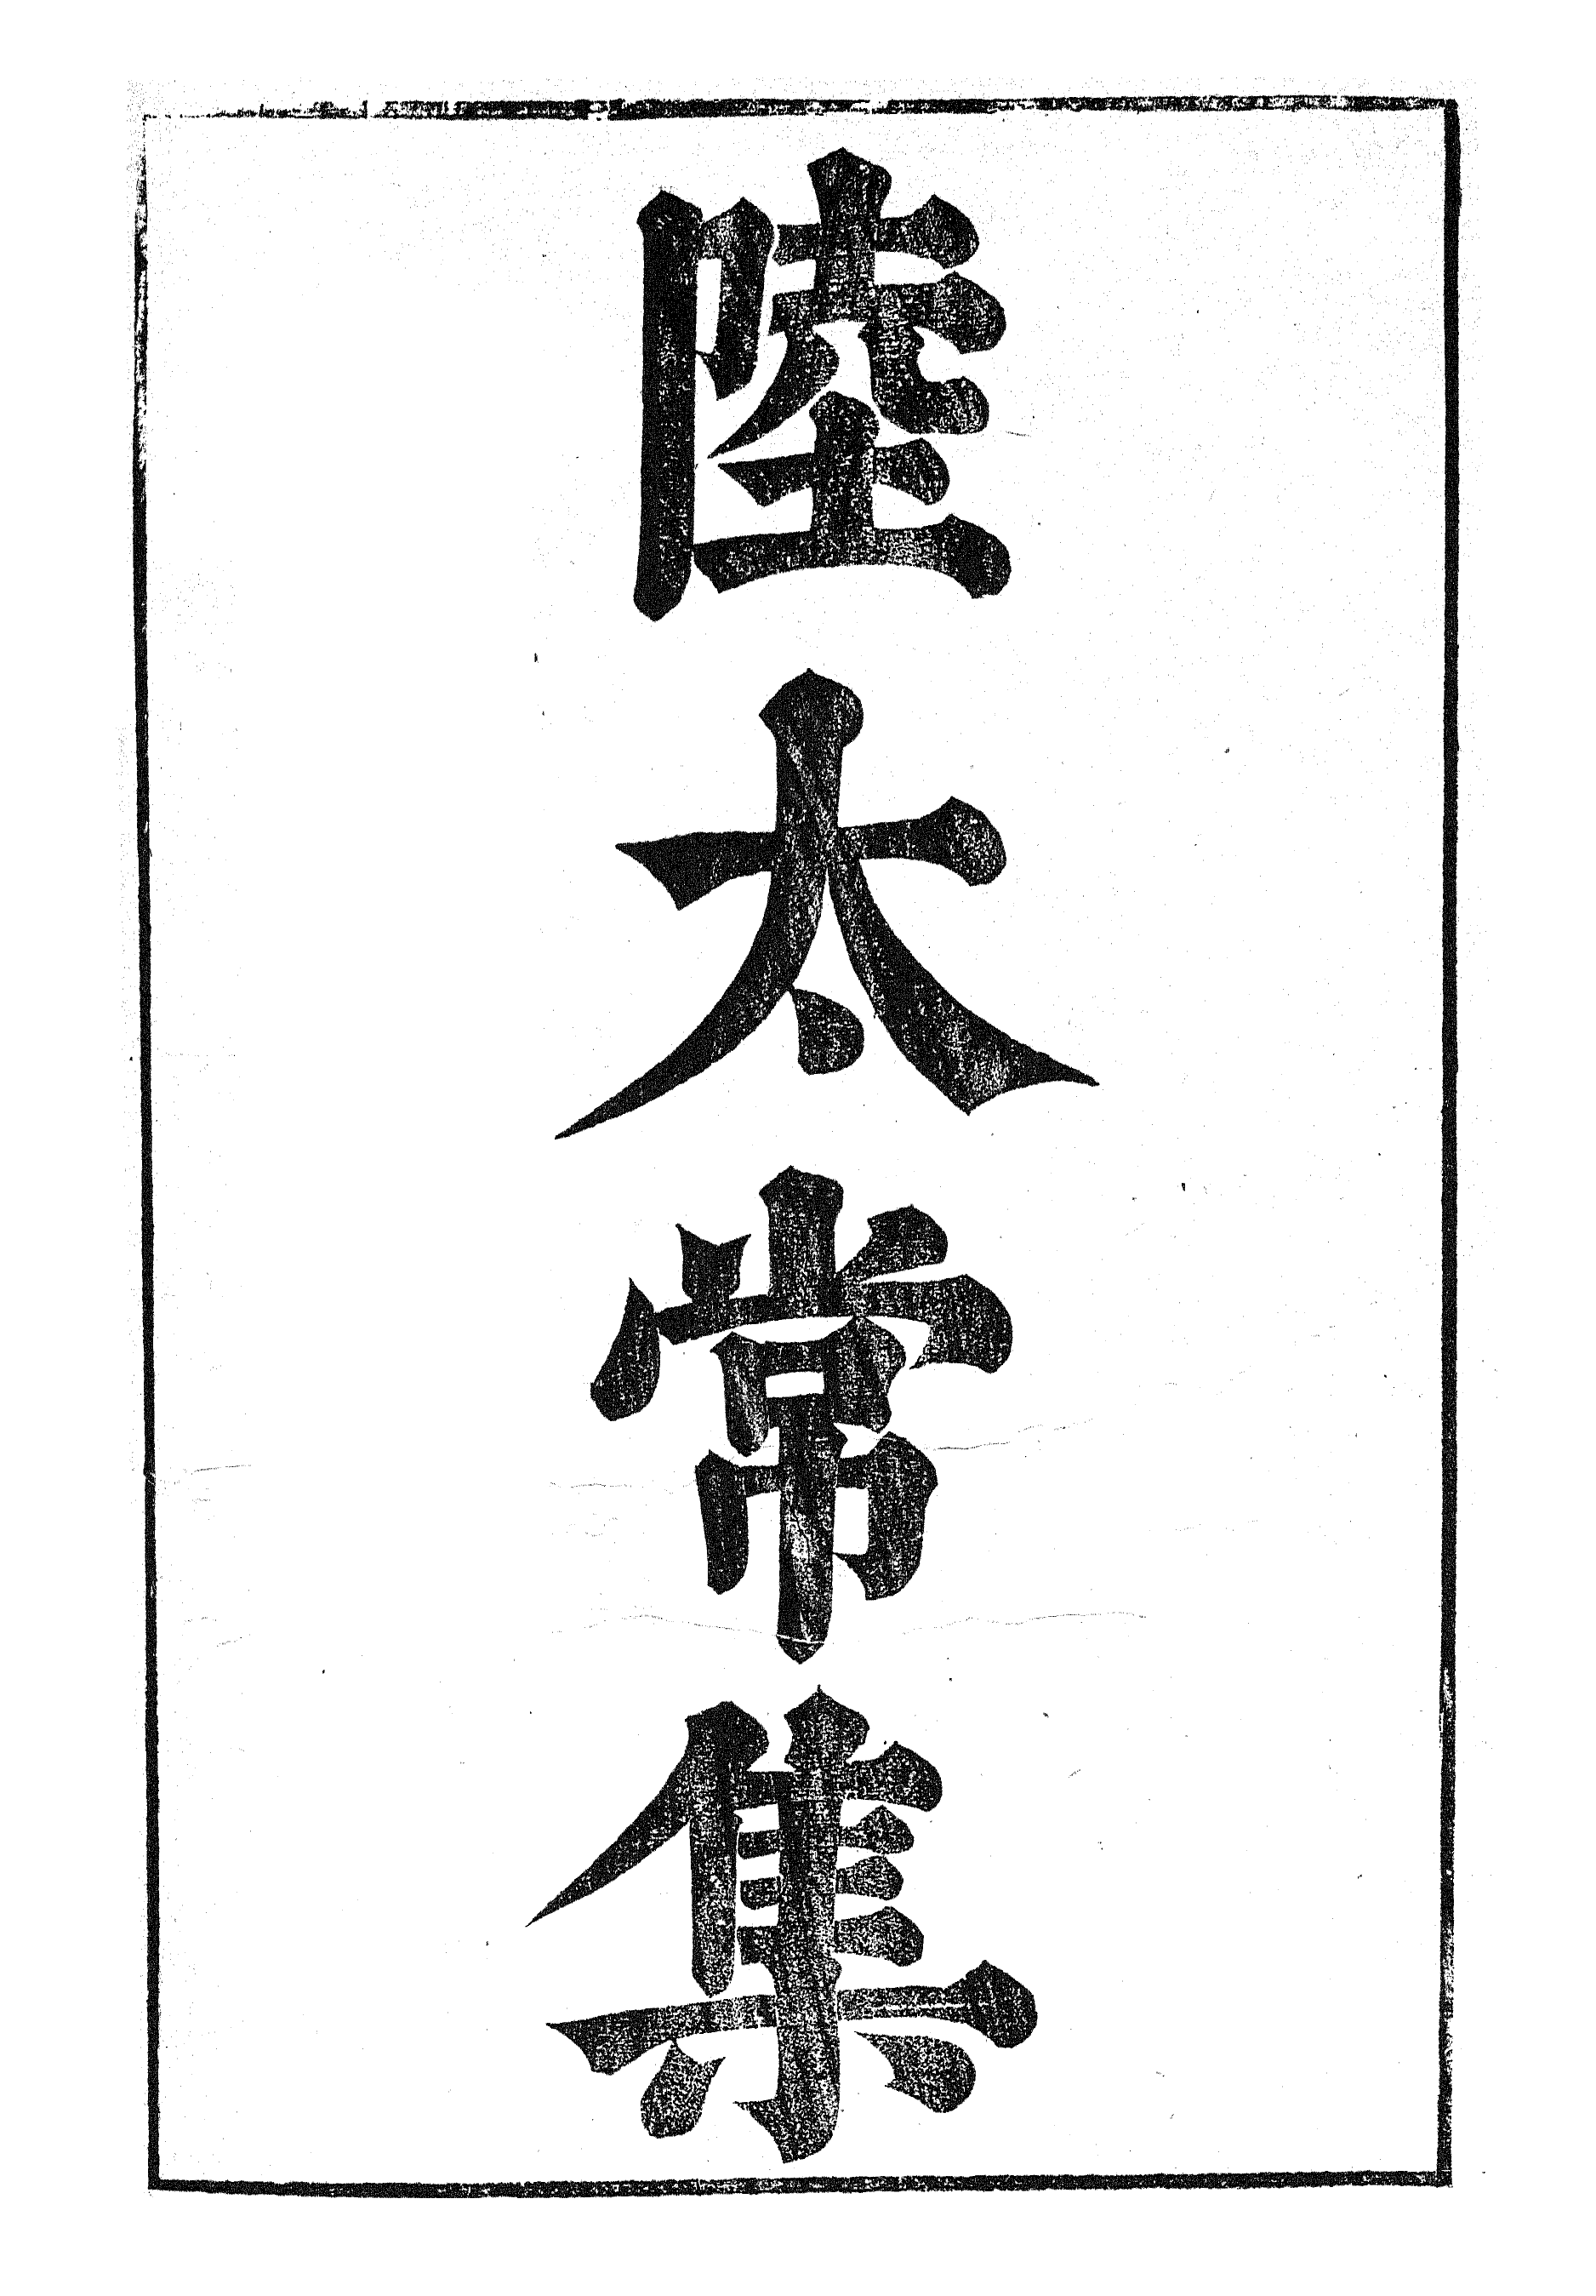 陸太常集